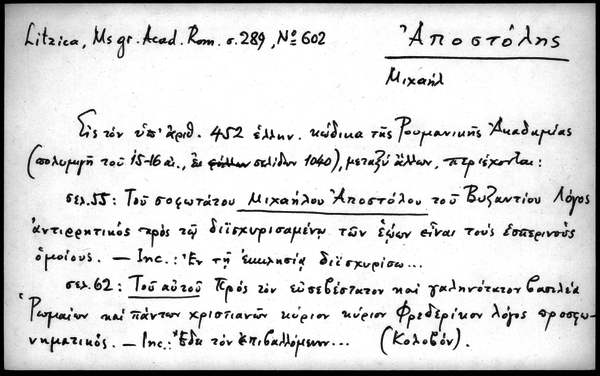 Litzica, Ms gr. Acad. Rom. σ. 289, Nº 602
Ἀποστόλης
Μιχαήλ
Εἰς τὸν ὑπ' ἀριθ. 452 ἑλλην. κώδικα τῆς Ρουμανικῆς Ἀκαδημίας
(πολυμιγῆ τοῦ 15-16 αἰ., ἐκ φύλλων σελίδων 1040), μεταξὺ ἄλλων, περιέχονται:
σελ. 55: Τοῦ σοφωτάτου Μιχαήλου Ἀποστόλου τοῦ Βυζαντίου Λόγος
ἀντιρρητικὸς πρὸς τῷ διϊσχυρισαμένῳ τῶν ἑῴων εἶναι τοὺς ἑσπερινοὺς
ὁμοίους. — Inc.: Ἐν τῇ ἐκκλησίᾳ διϊσχυρίσω...
σελ. 62: Τοῦ αὐτοῦ Πρὸς τὸν εὐσεβέστατον καὶ γαληνότατον βασιλέα
Ῥωμαίων καὶ πάντων χριστιανῶν κύριον κύριον Φρεδερίκον λόγος προσφω-
νηματικός. — Inc.: Ἔδει τὸν ἐπιβαλλόμενον... (Κολοβόν).